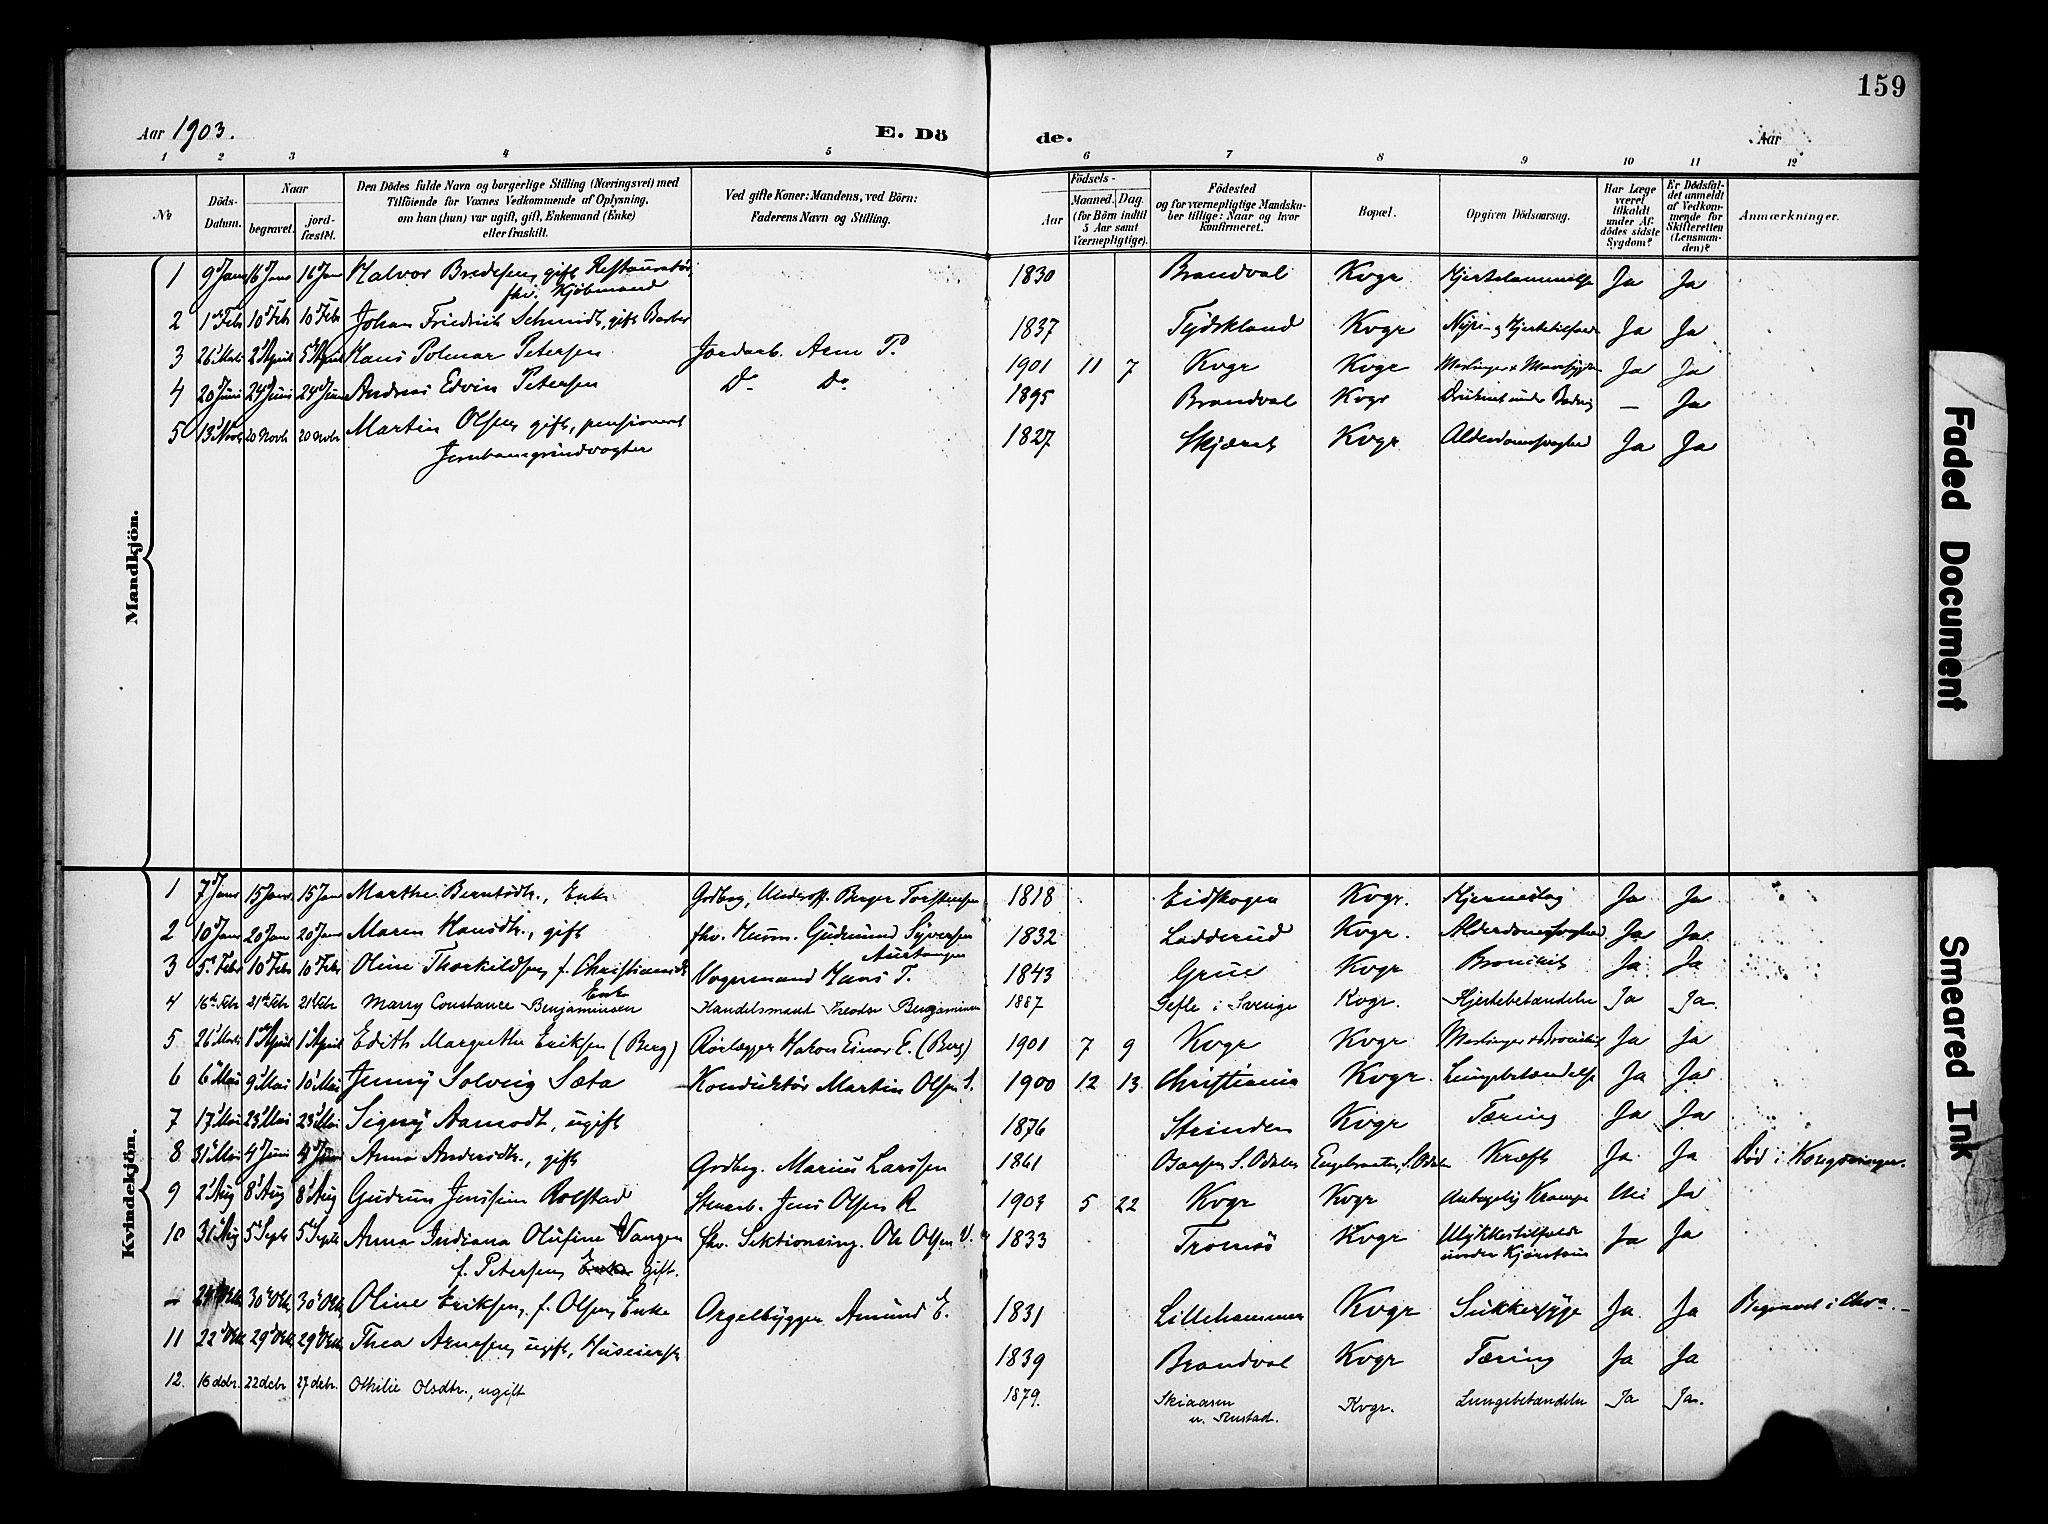 159
Aar 1903. E. Dö de. Aar
1 2 3 4 5 6 7 8 9 10 11 12
No Döds-Datum. Naar begravet. jord-fæstet. Den Dödes fulde Navn og borgerlige Stilling (Næringsvei) med Tilföiende for Voxnes Vedkommende af Oplysning, om han (hun) var ugift, gift, Enkemand (Enke) eller fraskilt. Ved gifte Koner: Mandens, ved Börn: Faderens Navn og Stilling. Födsels- Aar Maaned. Dag. (for Börn indtil 5 Aar samt Værnepligtige). Födested og for værnepligtige Mandskaber tillige: Naar og hvor konfirmeret. Bopæl. Opgiven Dödsaarsag. Har Læge været tilkaldt under Afdödes sidste Sygdom? Er Dödsfaldet anmeldt af Vedkommende for Skifteretten (Lensmanden)? Anmærkninger.
Mandkjön.
1 9 Jan 16 Jan 16 Jan Halvor Bredesen, gift Restauratör, 1830 Brandval Kvgr Hjertelammelse Ja Ja
fhv. Kjöbmand
2 1 Feb 10 Feb 10 Feb Johan Friedrich Schmidt, gift Barber 1837 Tydskland Kvgr Nyre- og Hjertetilfælde Ja Ja
3 26 2 April 5 April Hans Polmar Petersen Jordarb. Arn P. 1901 11 7 Kvgr Kvgr Ja Ja
4 20 Juni 24 Juni 24 Juni Andreas Edvin Petersen Do Do 1895 Brandval Kvgr Druknet under Badning — Ja
5 13 Novb 20 Novb 20 Novb Martin Olsen, gift, pensioneret 1827 Kvgr Alderdomssvaghed Ja Ja
Jernbanegrindvogter
Kvindekjön.
1 7 Jan 15 Jan 15 Jan Marthe Berntsdtr., Enke Gdbrg, Underoff. Berger Torstensen 1818 Eidskogen Kvgr. Hjerneslag Ja Ja
2 10 Jan 20 Jan 20 Jan Maren Hansdtr., gift fhv. Husm. Gudmund Syversen 1832 Ladderud Kvgr. Alderdomssvaghed Ja Ja
3 5 Feb 10 Feb 10 Feb Oline Thorkildsen, f. Christiansdtr Vognmand Hans T. 1843 Grue Kvgr Bronchit Ja Ja
Enke
4 16 Febr 21 Febr 21 Febr Marry Constance Benjaminsen Handelsmand Teodor Benjaminsen 1887 Gefle i Sverige Kvgr. Hjertebetændelse Ja Ja.
5 26 1 April 1 April Edith Margrethe Eriksen (Berg) Rörlægger Hakon Einar E. (Berg) 1901 7 9 Kvgr Kvgr Meslinger & Bronchit Ja Ja
6 6 Mai 9 Mai 10 Mai Jenny Solveig Sæta Konduktör Martin Olsen S. 1900 12 13 Christiania Kvgr. Lungebetændelse Ja Ja
7 17 Mai 23 Mai 23 Mai Signy Aamodt, ugift 1876 Strinden Kvgr Tæring Ja Ja
8 31 Mai 4 Juni 4 Juni Anna Andersdtr., gift Gdbrg. Marius Larssen 1861 S. Odalen S. Odalen Kræft Ja Ja Död i Kongsvinger.
9 2 Aug 8 Aug 8 Aug Gudrun Jenssine Rolstad Stenarb. Jens Olsen R 1903 5 22 Kvgr Kvgr Antagelig Krampe Nei Ja
10 31 Aug 5 Septb 5 Septb Anna Indiana Olufine Vangen fhv. Sektionsing. Ole Olsen V. 1833 Tromsö Kvgr Ulykkestilfælde Ja Ja
under Kjöretur
f. Petersen, Enke gift.
— 24 Okt 30 Okt 30 Okt Oline Eriksen, f. Olsen, Enke Orgelbygger Amund E. 1831 Lillehammer Kvgr Sukkersyge Ja Ja Begravet i Chra.
11 22 Okt 29 Okt 29 Okt Thea Arnesen, ugift, Huseierske 1839 Brandval Kvgr Tæring Ja Ja
12. 16 decbr. 22 decbr 27 decbr. Othilie Olsdtr., ugift 1879. Skiaasen Kvgr. Lungebetændelse Ja Ja.
u. Rustad.
Faded Document
Smeared Ink